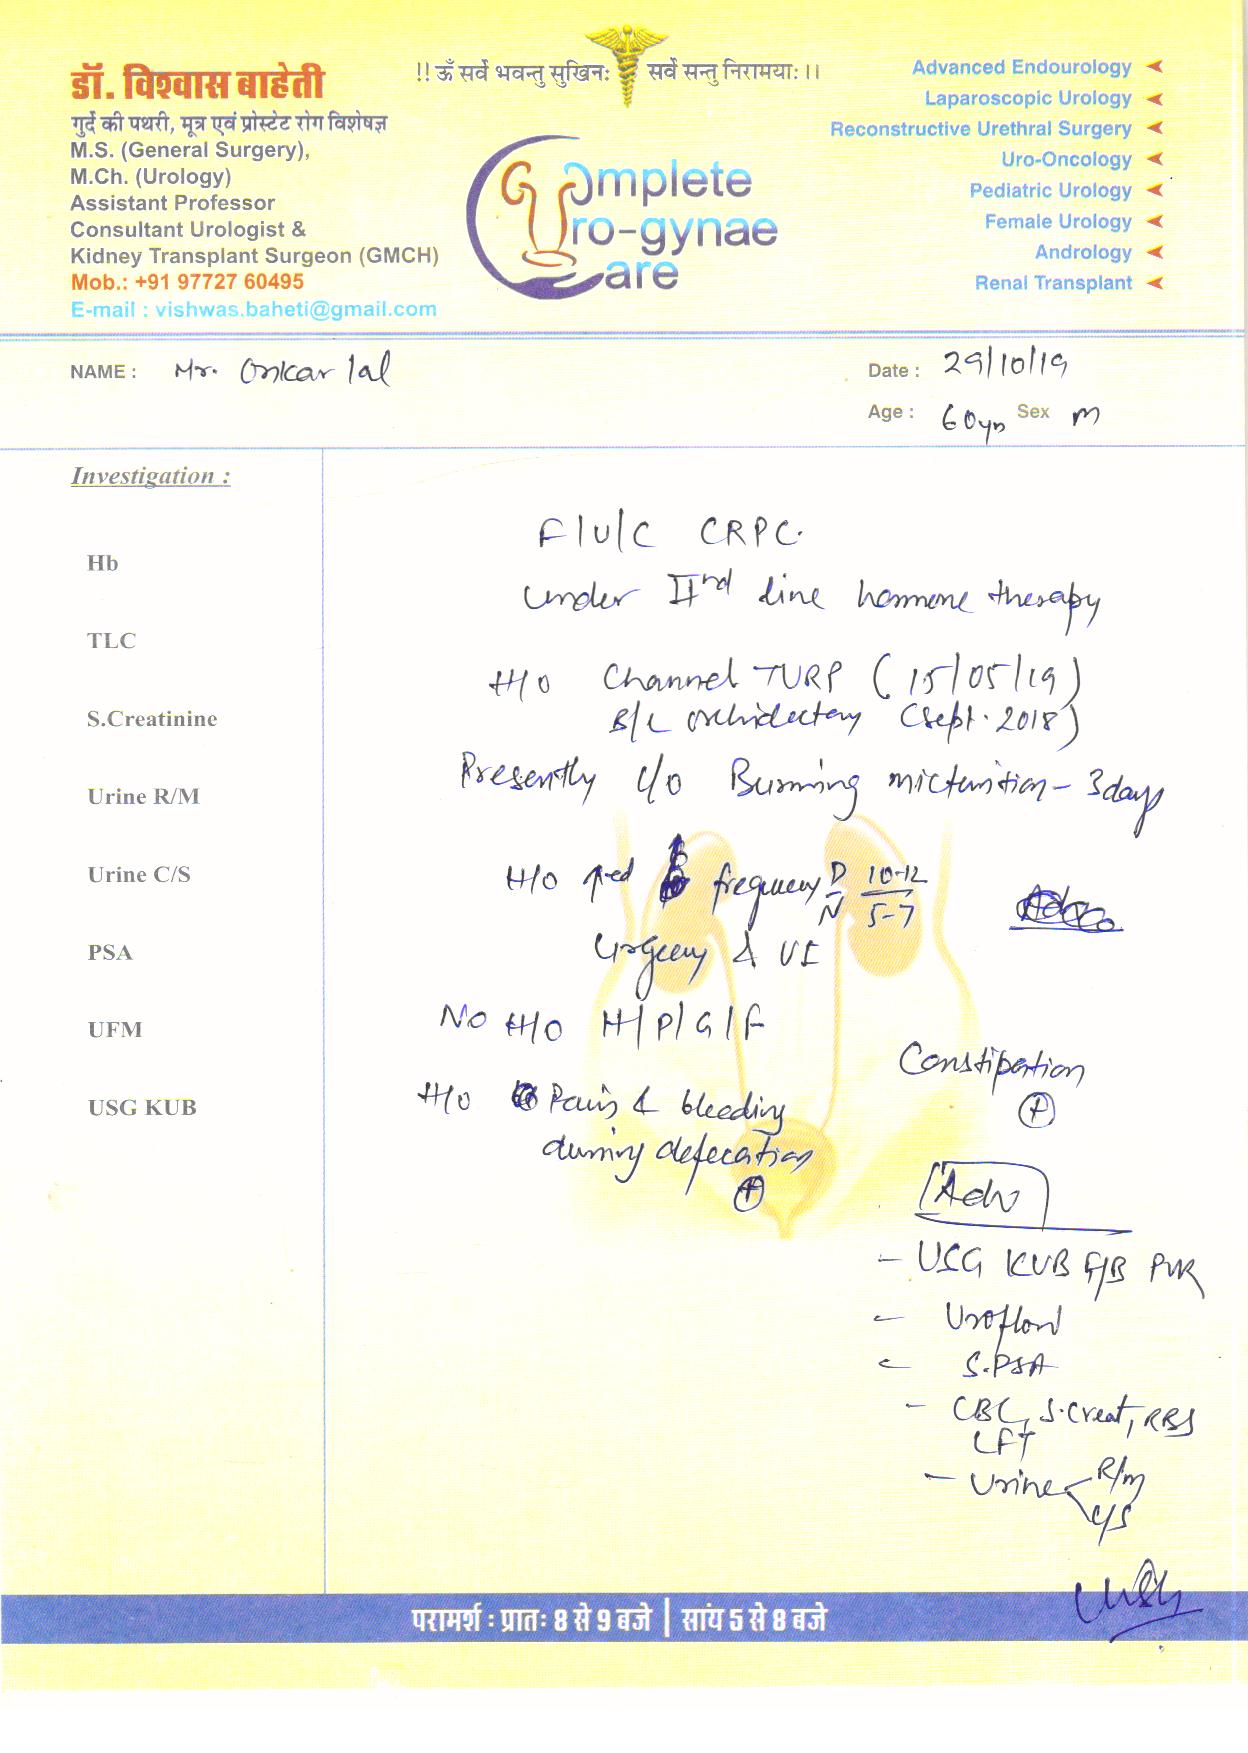 !! ॐ सर्वे भवन्तु सुखिनः सर्वे सन्तु निरामयाः ।।
डॉ. विश्वास बाहेती
गुर्दे की पथरी, मूत्र एवं प्रोस्टेट रोग विशेषज्ञ
M.S. (General Surgery),
M.Ch. (Urology)
Assistant Professor
Consultant Urologist &
Kidney Transplant Surgeon (GMCH)
Mob.: +91 97727 60495
E-mail : vishwas.baheti@gmail.com
Complete
Uro-gynae
Care
Advanced Endourology
Laparoscopic Urology
Reconstructive Urethral Surgery
Uro-Oncology
Pediatric Urology
Female Urology
Andrology
Renal Transplant
NAME : Mr. Onkar lal
Date : 29/10/19
Age : 60yrs Sex M
Investigation :
Hb
TLC
S.Creatinine
Urine R/M
Urine C/S
PSA
UFM
USG KUB
F/U/C CRPC.
under IInd line hormone therapy
H/O Channel TURP (15/05/19)
B/L orchidectomy (Sept. 2018)
Presently c/o Burning micturition - 3days
H/O ↑ed frequency D/N 10-12/5-7
Urgency & UI
No H/O H/P/G/F
Constipation
+
H/O Pain & bleeding
during defecation
+
Adv
- USG KUB F/B PVR
- Uroflow
- S.PSA
- CBC, S.Creat, RBS
LFT
- Urine R/M
C/S
परामर्श : प्रातः 8 से 9 बजे | सांय 5 से 8 बजे